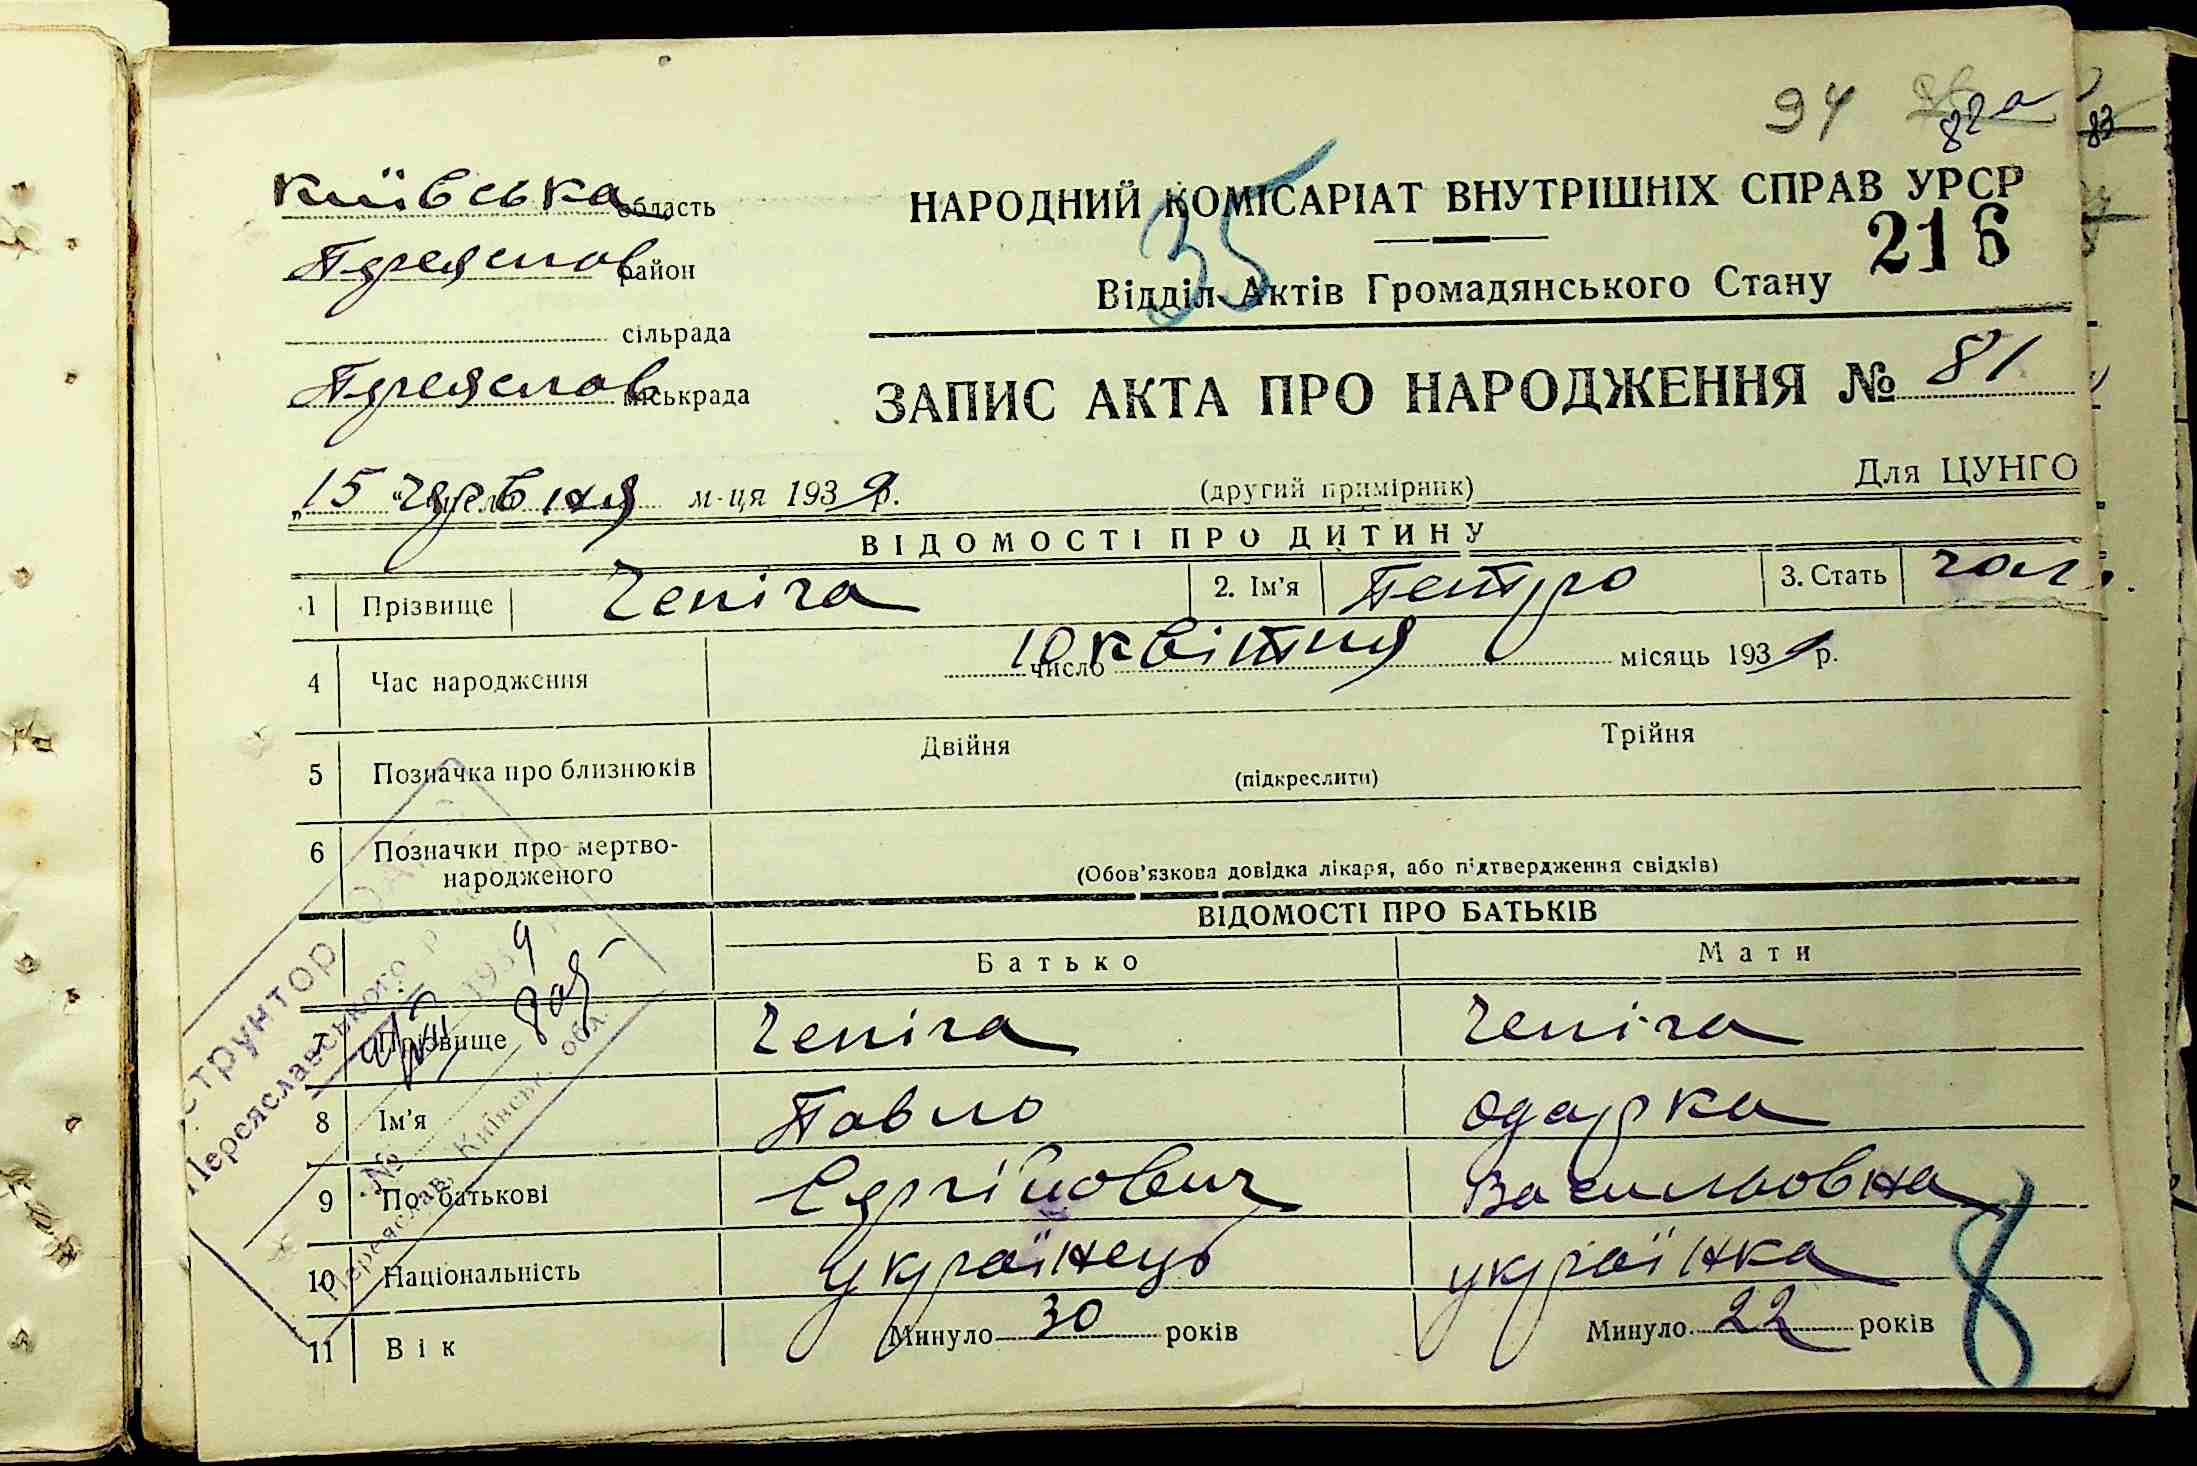 94 82а
83
Київська область
НАРОДНИЙ КОМІСАРІАТ ВНУТРІШНІХ СПРАВ УРСР
35
216
Переяслов район
Відділ Актів Громадянського Стану
сільрада
Переяслов міськрада
ЗАПИС АКТА ПРО НАРОДЖЕННЯ № 81
„15 “ червня м-ця 1939 р.
(другий примірник)
Для ЦУНГО
ВІДОМОСТІ ПРО ДИТИНУ
1 Прізвище Чепіга 2. Ім'я Петро 3. Стать чол.
4 Час народження 10 число квітня місяць 1939 р.
5 Позначка про близнюків Двійня Трійня
(підкреслити)
6 Позначки про мертво-
народженого
(Обов'язкова довідка лікаря, або підтвердження свідків)
ВІДОМОСТІ ПРО БАТЬКІВ
Батько Мати
7 Прізвище Чепіга Чепіга
8 Ім'я Павло Одарка
9 По батькові Сергійович Васильовна
10 Національність українець українка
11 Вік Минуло 30 років Минуло 22 років
8
Переяславського
1939
№
Переяслав, Київськ. обл.